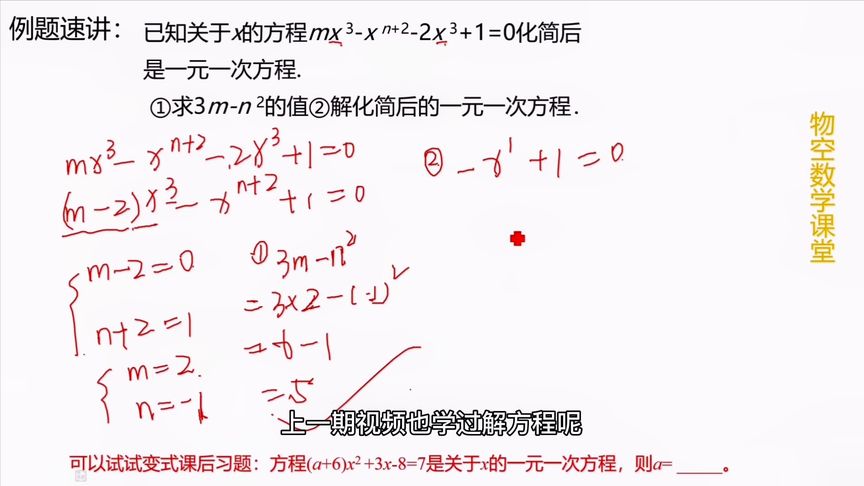 例题速讲： 已知关于x的方程mx³-xⁿ⁺²-2x³+1=0化简后
是一元一次方程.
①求3m-n²的值②解化简后的一元一次方程.
物空数学课堂
mx³-xⁿ⁺²-2x³+1=0
(m-2)x³-xⁿ⁺²+1=0
m-2=0
n+2=1
m=2.
n=-1
① 3m-n²
=3×2-(-1)²
=6-1
=5
② -x¹+1=0
上一期视频也学过解方程呢
可以试试变式课后习题：方程(a+6)x²+3x-8=7是关于x的一元一次方程，则a= _____。